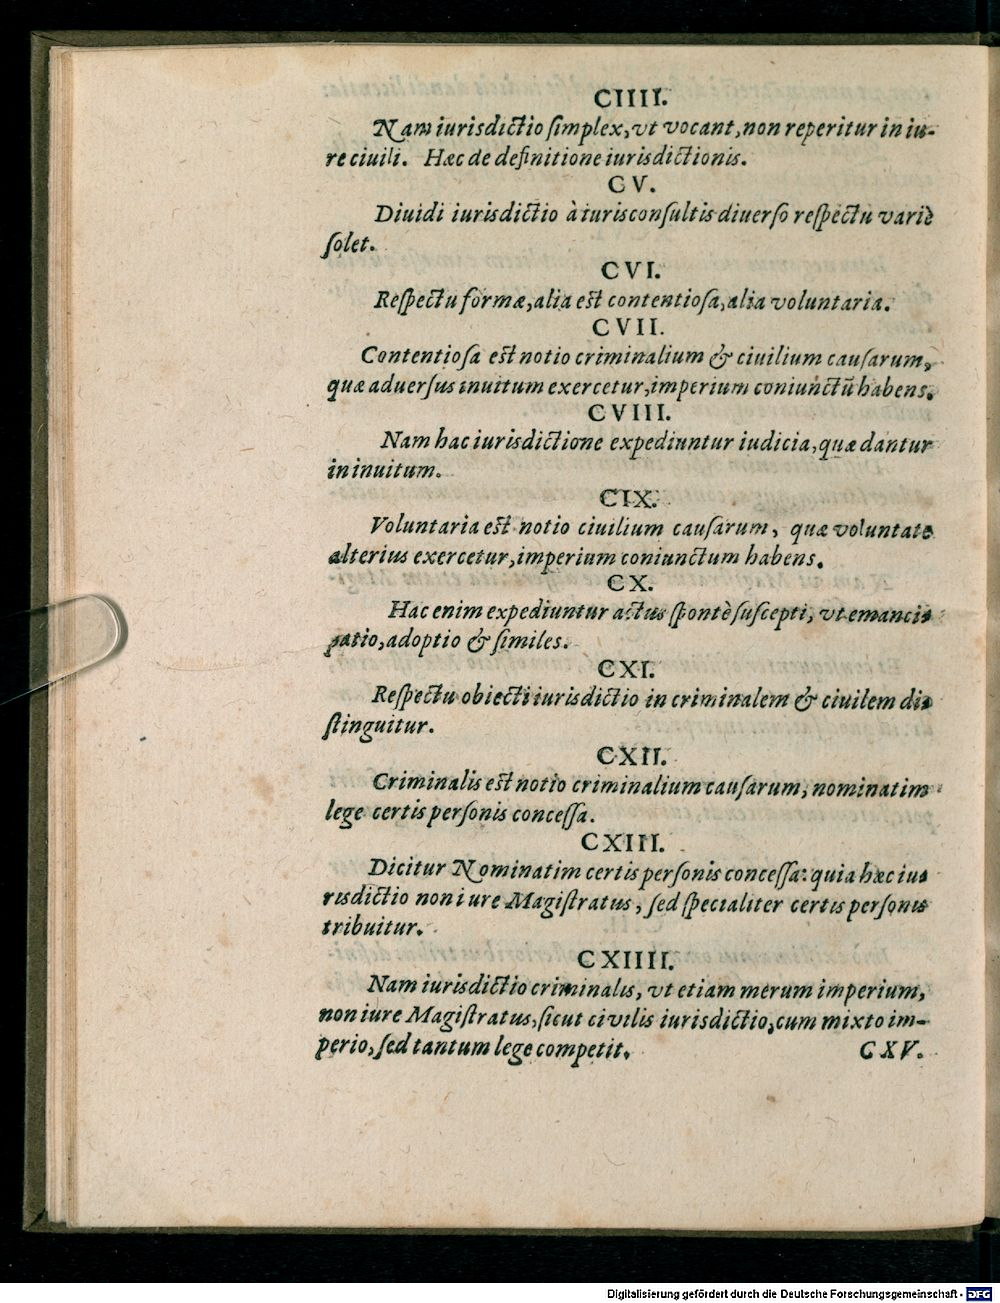 CIIII.
Nam iurisdictio ſimplex, vt vocant, non reperitur in iu-
re ciuili. Hæc de definitione iurisdictionis.
CV.
Diuidi iurisdictio à iurisconſultis diuerſo reſpectu variè
ſolet.
CVI.
Reſpectu formæ, alia est contentioſa, alia voluntaria.
CVII.
Contentioſa est notio criminalium & ciuilium cauſarum,
quæ aduerſus inuitum exercetur, imperium coniunctũ habens.
CVIII.
Nam hac iurisdictione expediuntur iudicia, quæ dantur
in inuitum.
CIX.
Voluntaria est notio ciuilium cauſarum, quæ voluntate
alterius exercetur, imperium coniunctum habens.
CX.
Hac enim expediuntur actus ſpontè ſuſcepti, vt emanci-
patio, adoptio & ſimiles.
CXI.
Reſpectu obiecti iurisdictio in criminalem & ciuilem di-
ſtinguitur.
CXII.
Criminalis est notio criminalium cauſarum, nominatim
lege certis perſonis conceſſa.
CXIII.
Dicitur Nominatim certis perſonis conceſſa: quia hæc iu-
risdictio non iure Magiſtratus, ſed ſpecialiter certis perſonis
tribuitur.
CXIIII.
Nam iurisdictio criminalis, vt etiam merum imperium,
non iure Magiſtratus, ſicut civilis iurisdictio, cum mixto im-
perio, ſed tantum lege competit. CXV.
Digitalisierung gefördert durch die Deutsche Forschungsgemeinschaft - DFG